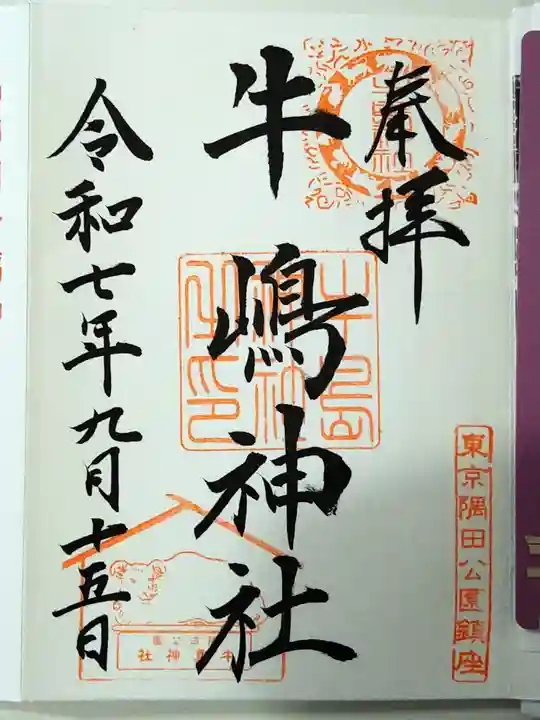 奉拝
牛嶋神社
令和七年九月十五日
東京隅田公園鎮座